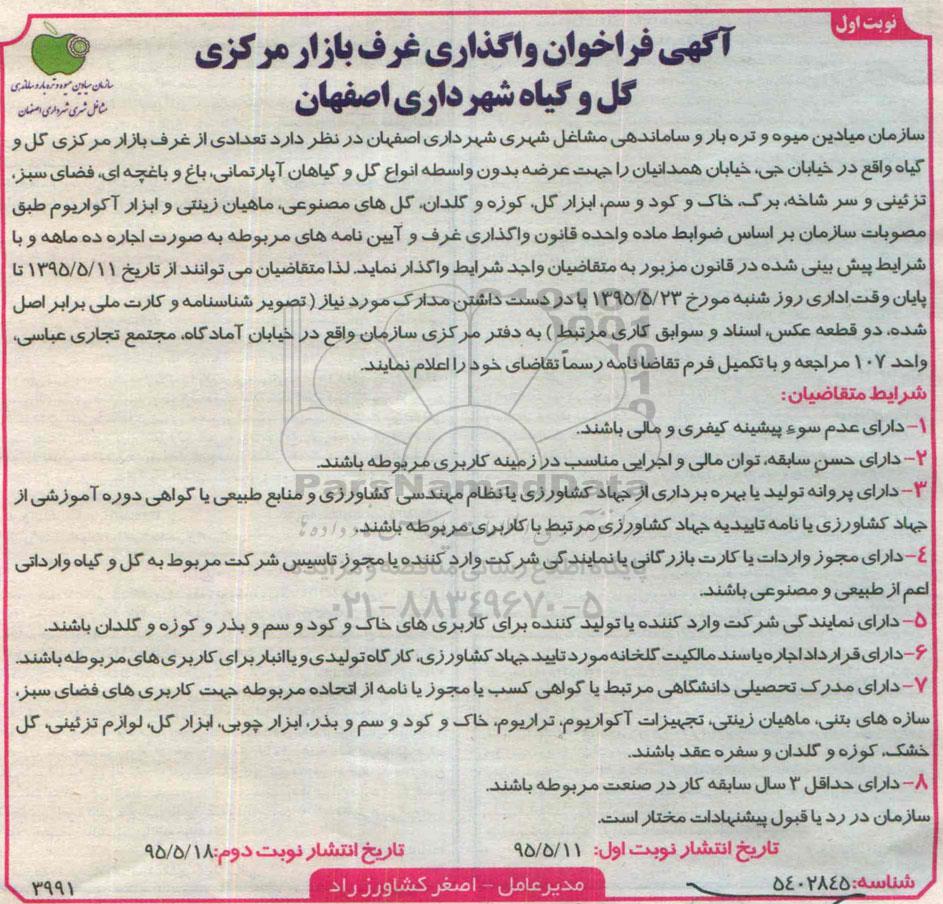 نوبت اول
آگهی فراخوان واگذاری غرف بازار مرکزی
گل و گیاه شهرداری اصفهان
سازمان میادین میوه و تره بار و ساماندهی
مشاغل شهری شهرداری اصفهان
سازمان میادین میوه و تره بار و ساماندهی مشاغل شهری شهرداری اصفهان در نظر دارد تعدادی از غرف بازار مرکزی گل و
گیاه واقع در خیابان جی، خیابان همدانیان را جهت عرضه بدون واسطه انواع گل و گیاهان آپارتمانی، باغ و باغچه ای، فضای سبز،
تزئینی و سر شاخه، برگ، خاک و کود و سم، ابزار گل، کوزه و گلدان، گل های مصنوعی، ماهیان زینتی و ابزار آکواریوم طبق
مصوبات سازمان بر اساس ضوابط ماده واحده قانون واگذاری غرف و آیین نامه های مربوطه به صورت اجاره ده ماهه و با
شرایط پیش بینی شده در قانون مزبور به متقاضیان واجد شرایط واگذار نماید. لذا متقاضیان می توانند از تاریخ ۱۳۹۵/۵/۱۱ تا
پایان وقت اداری روز شنبه مورخ ۱۳۹۵/۵/۲۳ با در دست داشتن مدارک مورد نیاز ( تصویر شناسنامه و کارت ملی برابر اصل
شده، دو قطعه عکس، اسناد و سوابق کاری مرتبط ) به دفتر مرکزی سازمان واقع در خیابان آمادگاه، مجتمع تجاری عباسی،
واحد ۱۰۷ مراجعه و با تکمیل فرم تقاضا نامه رسماً تقاضای خود را اعلام نمایند.
شرایط متقاضیان:
۱- دارای عدم سوء پیشینه کیفری و مالی باشند.
۲- دارای حسن سابقه، توان مالی و اجرایی مناسب در زمینه کاربری مربوطه باشند.
۳- دارای پروانه تولید یا بهره برداری از جهاد کشاورزی یا نظام مهندسی کشاورزی و منابع طبیعی یا گواهی دوره آموزشی از
جهاد کشاورزی یا نامه تاییدیه جهاد کشاورزی مرتبط با کاربری مربوطه باشند.
۴- دارای مجوز واردات یا کارت بازرگانی یا نمایندگی شرکت وارد کننده یا مجوز تاسیس شرکت مربوط به گل و گیاه وارداتی
اعم از طبیعی و مصنوعی باشند.
۵- دارای نمایندگی شرکت وارد کننده یا تولید کننده برای کاربری های خاک و کود و سم و بذر و کوزه و گلدان باشند.
۶- دارای قرارداد اجاره یا سند مالکیت گلخانه مورد تایید جهاد کشاورزی، کارگاه تولیدی و یا انبار برای کاربری های مربوطه باشند.
۷- دارای مدرک تحصیلی دانشگاهی مرتبط یا گواهی کسب یا مجوز یا نامه از اتحاده مربوطه جهت کاربری های فضای سبز،
سازه های بتنی، ماهیان زینتی، تجهیزات آکواریوم، تراریوم، خاک و کود و سم و بذر، ابزار چوبی، ابزار گل، لوازم تزئینی، گل
خشک، کوزه و گلدان و سفره عقد باشند.
۸- دارای حداقل ۳ سال سابقه کار در صنعت مربوطه باشند.
سازمان در رد یا قبول پیشنهادات مختار است.
تاریخ انتشار نوبت اول: ۹۵/۵/۱۱ تاریخ انتشار نوبت دوم: ۹۵/۵/۱۸
شناسه: ۵۴۰۲۸۴۵
مدیرعامل - اصغر کشاورز راد
۳۹۹۱
ParsNamadData
پایگاه اطلاع رسانی مناقصه و مزایده
۰۲۱-۸۸۳۴۹۶۷۰-۵